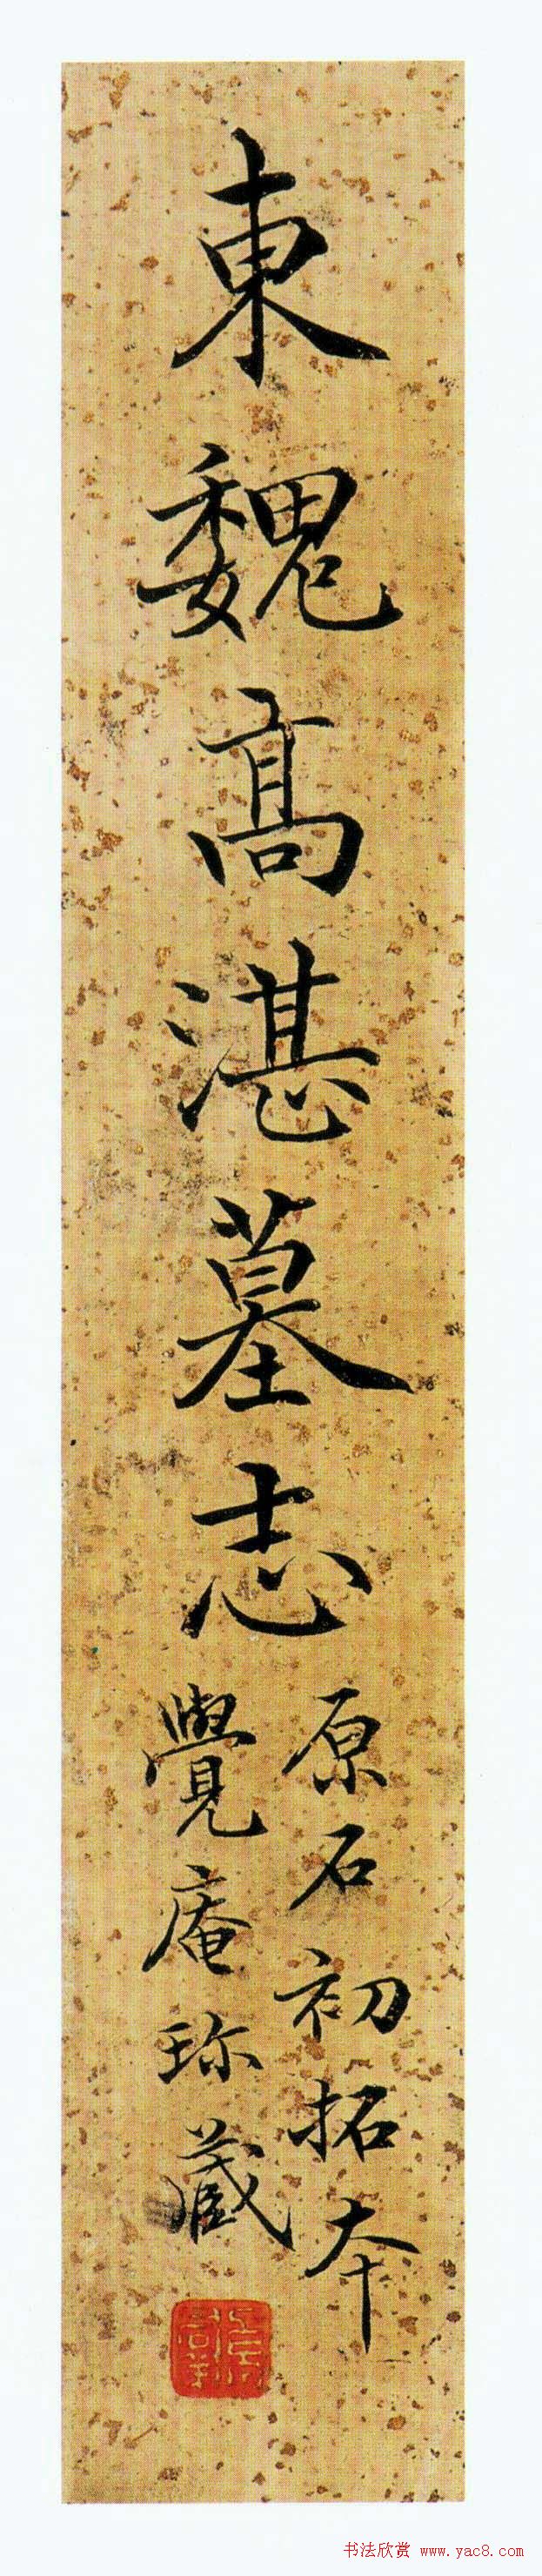 東魏高湛墓志
原石初拓本
覺庵珎藏
书法欣赏 www.yac8.com